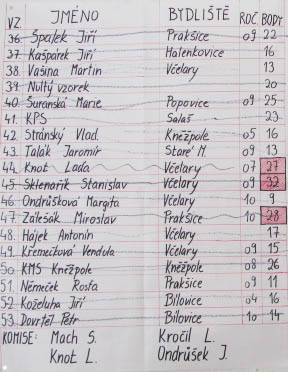 VZ. JMÉNO BYDLIŠTĚ ROČ. BODY
36. Špalek Jiří Prakšice 09 22
37. Kašpárek Jiří Halenkovice 16
38. Vašina Martin Včelary 13
39. Nultý vzorek 20
40. Šuranská Marie Popovice 09 25
41. KPS Salaš 23
42. Stránský Vlad. Kněžpole 05 16
43. Talák Jaromír Staré M. 09 13
44. Knot Lada Včelary 07 27
45. Sklenařík Stanislav Včelary 09 32
46. Ondrůšková Margita Včelary 10 9
47. Zálešák Miroslav Prakšice 10 28
48. Hájek Antonín Včelary 17
49. Křemeižová Vendula Včelary 09 15
50. KMS Kněžpole Kněžpole 08 26
51. Němeček Rosťa Prakšice 09 11
52. Koželuha Jiří Bílovice 04 16
53. Dovrtěl Petr Bílovice 10 14
KOMISE: Mach S. Kročil L.
Knot L. Ondrůšek J.